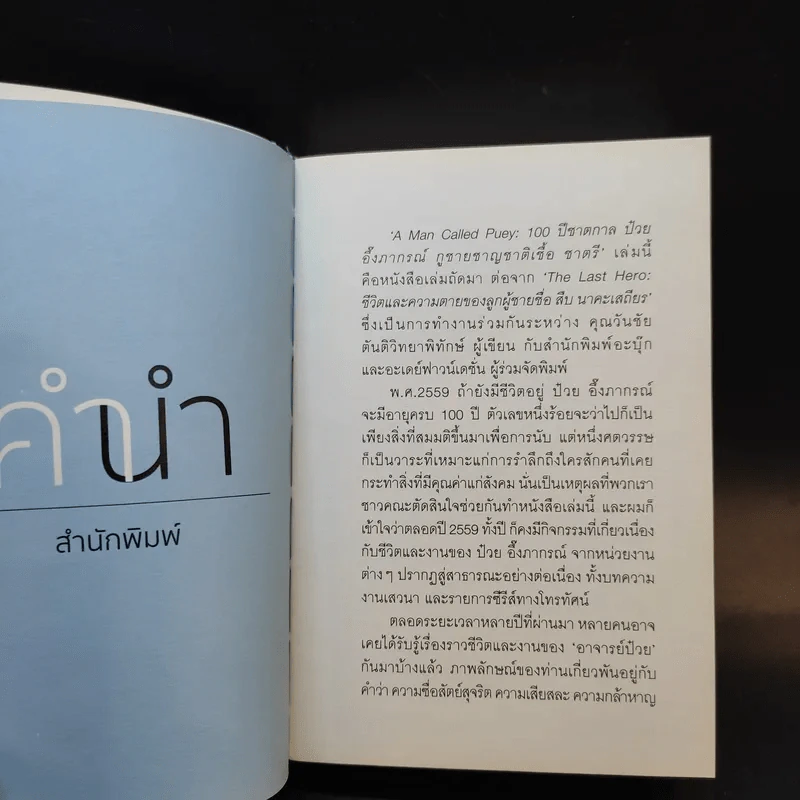 คำนำ
สำนักพิมพ์
‘A Man Called Puey: 100 ปีชาตกาล ป๋วย
อึ๊งภากรณ์ กูชายชาญชาติเชื้อ ชาตรี’ เล่มนี้
คือหนังสือเล่มถัดมา ต่อจาก ‘The Last Hero:
ชีวิตและความตายของลูกผู้ชายชื่อ สืบ นาคะเสถียร’
ซึ่งเป็นการทำงานร่วมกันระหว่าง คุณวันชัย
ตันติวิทยาพิทักษ์ ผู้เขียน กับสำนักพิมพ์อะบุ๊ก
และอะเดย์ฟาวน์เดชั่น ผู้ร่วมจัดพิมพ์
พ.ศ.2559 ถ้ายังมีชีวิตอยู่ ป๋วย อึ๊งภากรณ์
จะมีอายุครบ 100 ปี ตัวเลขหนึ่งร้อยจะว่าไปก็เป็น
เพียงสิ่งที่สมมติขึ้นมาเพื่อการนับ แต่หนึ่งศตวรรษ
ก็เป็นวาระที่เหมาะแก่การรำลึกถึงใครสักคนที่เคย
กระทำสิ่งที่มีคุณค่าแก่สังคม นั่นเป็นเหตุผลที่พวกเรา
ชาวคณะตัดสินใจช่วยกันทำหนังสือเล่มนี้ และผมก็
เข้าใจว่าตลอดปี 2559 ทั้งปี ก็คงมีกิจกรรมที่เกี่ยวเนื่อง
กับชีวิตและงานของ ป๋วย อึ๊งภากรณ์ จากหน่วยงาน
ต่างๆ ปรากฏสู่สาธารณะอย่างต่อเนื่อง ทั้งบทความ
งานเสวนา และรายการซีรีส์ทางโทรทัศน์
ตลอดระยะเวลาหลายปีที่ผ่านมา หลายคนอาจ
เคยได้รับรู้เรื่องราวชีวิตและงานของ ‘อาจารย์ป๋วย’
กันมาบ้างแล้ว ภาพลักษณ์ของท่านเกี่ยวพันอยู่กับ
คำว่า ความซื่อสัตย์สุจริต ความเสียสละ ความกล้าหาญ